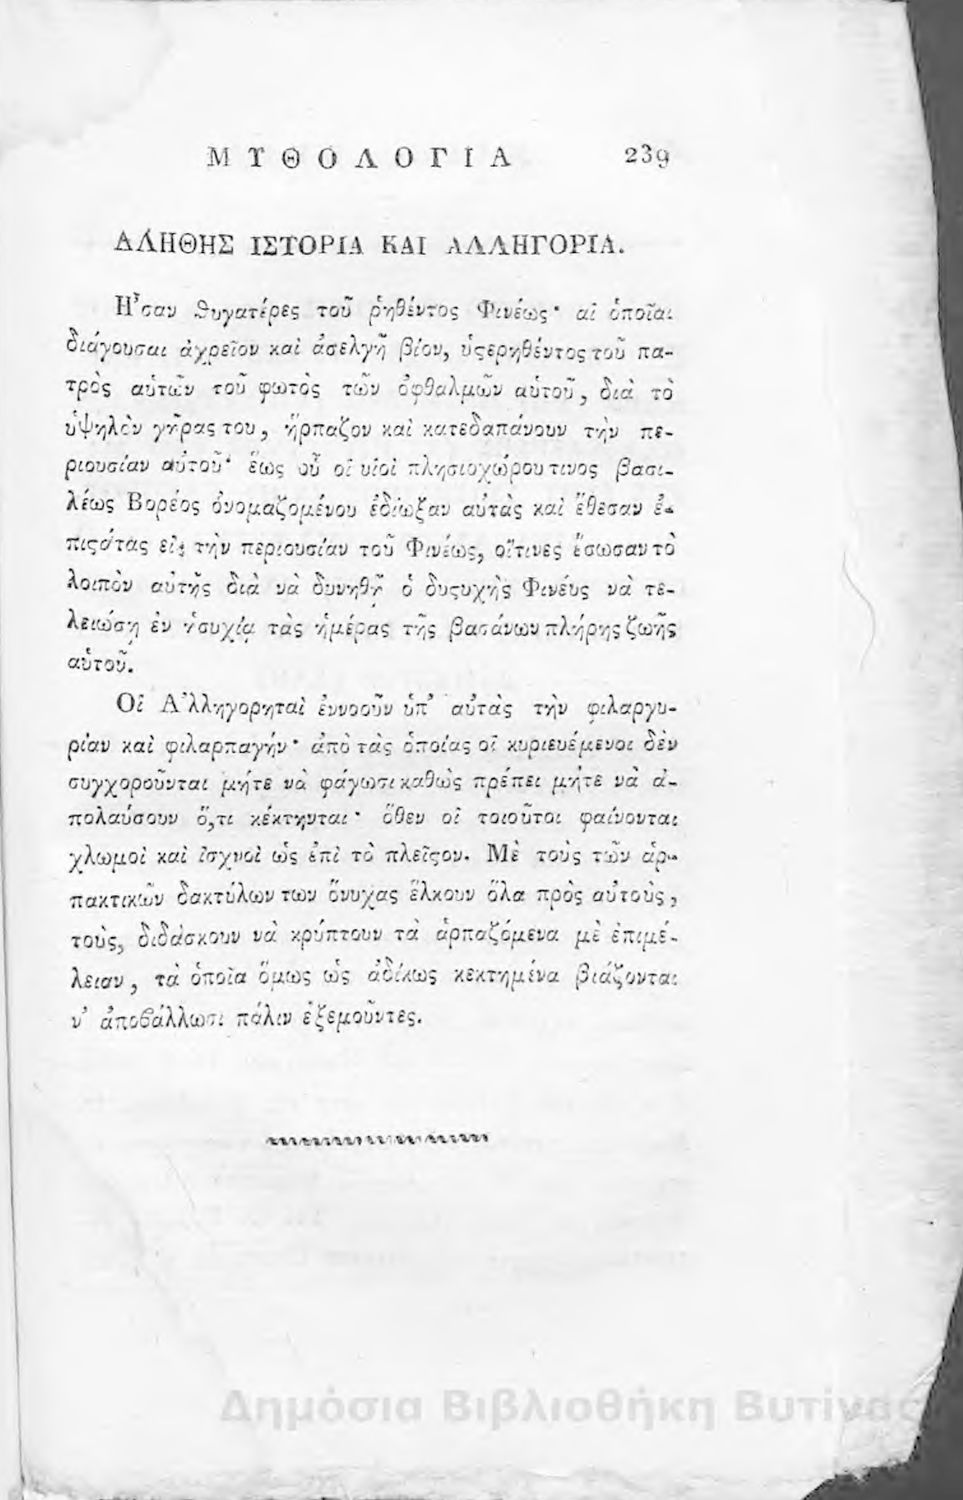 ΜΥΘΟΛΟΓΙΑ 239
ΑΛΗΘΗΣ ΙΣΤΟΡΙΑ ΚΑΙ ΑΛΛΗΓΟΡΙΑ.
Ἦσαν ϑυγατέρες τοῦ ῥηθέντος Φινέως· αἱ ὁποῖαι
διάγουσαι ἀχρεῖον καὶ ἀσελγῆ βίον, ὑϛερηθέντος τοῦ πα-
τρὸς αὐτῶν τοῦ φωτὸς τῶν ὀφθαλμῶν αὑτοῦ, διὰ τὸ
ὑψηλὸν γῆρας του, ἥρπαζον καὶ κατεδαπάνουν τὴν πε-
ριουσίαν αὐτοῦ· ἕως οὗ οἱ υἱοὶ πλησιοχώρου τινος βασι-
λέως Βορέος ὀνομαζομένου ἐδίωξαν αὐτὰς καὶ ἔθεσαν ἐ-
πιϛάτας εἰς τὴν περιουσίαν τοῦ Φινέως, οἵτινες ἔσωσαν τὸ
λοιπὸν αὐτῆς διὰ νὰ δυνηθῇ ὁ δυϛυχὴς Φινεὺς νὰ τε-
λειώσῃ ἐν ἡσυχίᾳ τὰς ἡμέρας τῆς βασάνων πλήρης ζωῆς
αὑτοῦ.
Οἱ Ἀλληγορηταὶ ἐννοοῦν ὑπ' αὐτὰς τὴν φιλαργυ-
ρίαν καὶ φιλαρπαγήν· ἀπὸ τὰς ὁποίας οἱ κυριευέμενοι δὲν
συγχοροῦνται μήτε νὰ φάγωσι καθὼς πρέπει μήτε νὰ ἀ-
πολαύσουν ὅ,τι κέκτηνται· ὅθεν οἱ τοιοῦτοι φαίνονται
χλωμοὶ καὶ ἰσχνοὶ ὡς ἐπὶ τὸ πλεῖϛον. Μὲ τοὺς τῶν ἁρ-
πακτικῶν δακτύλων των ὄνυχας ἕλκουν ὅλα πρὸς αὑτοὺς,
τοὺς, διδάσκουν νὰ κρύπτουν τὰ ἁρπαζόμενα μὲ ἐπιμέ-
λειαν, τὰ ὁποῖα ὅμως ὡς ἀδίκως κεκτημένα βιάζονται
ν' ἀποβάλλωσι πάλιν ἐξεμοῦντες.
Δημόσια Βιβλιοθήκη Βυτίνας